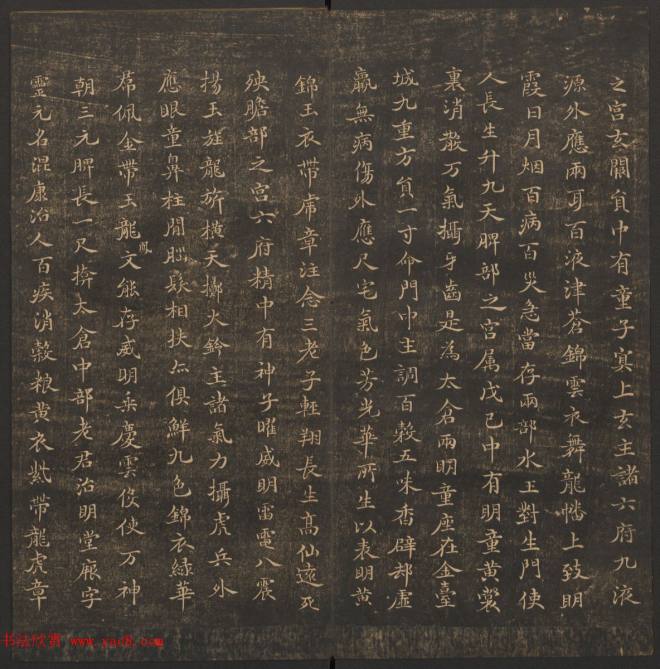 之宮玄闕貟中有童子冥上玄主諸六府九液
源外應兩耳百液津蒼錦雲衣舞龍幡上致明
霞日月烟百病百災急當存兩部水王對生門使
人長生升九天脾部之宮属戊己中有明童黃裳
裏消散万氣攝牙齒是為太倉兩明童座在金臺
城九重方負一寸命門中主調百穀五味香辟却虛
羸無病傷外應尺宅氣色芳光華所生以表明黃
錦玉衣帶席章注念三老子輕翔長生高仙遠死
殃膽部之宮六府精中有神子曜威明雷電八震
揚玉旌龍旂橫天擲火鈴主諸氣力攝虎兵外
應眼童鼻柱間腦髮相扶亦俱鮮九色錦衣綠華
帬佩金帶玉龍文能存威明乘慶雲役使万神
鳳
朝三元脾長一尺揜太倉中部老君治明堂厥字
靈元名混康治人百疾消穀粮黃衣紫帶龍虎章
书法欣赏 www.yac8.com